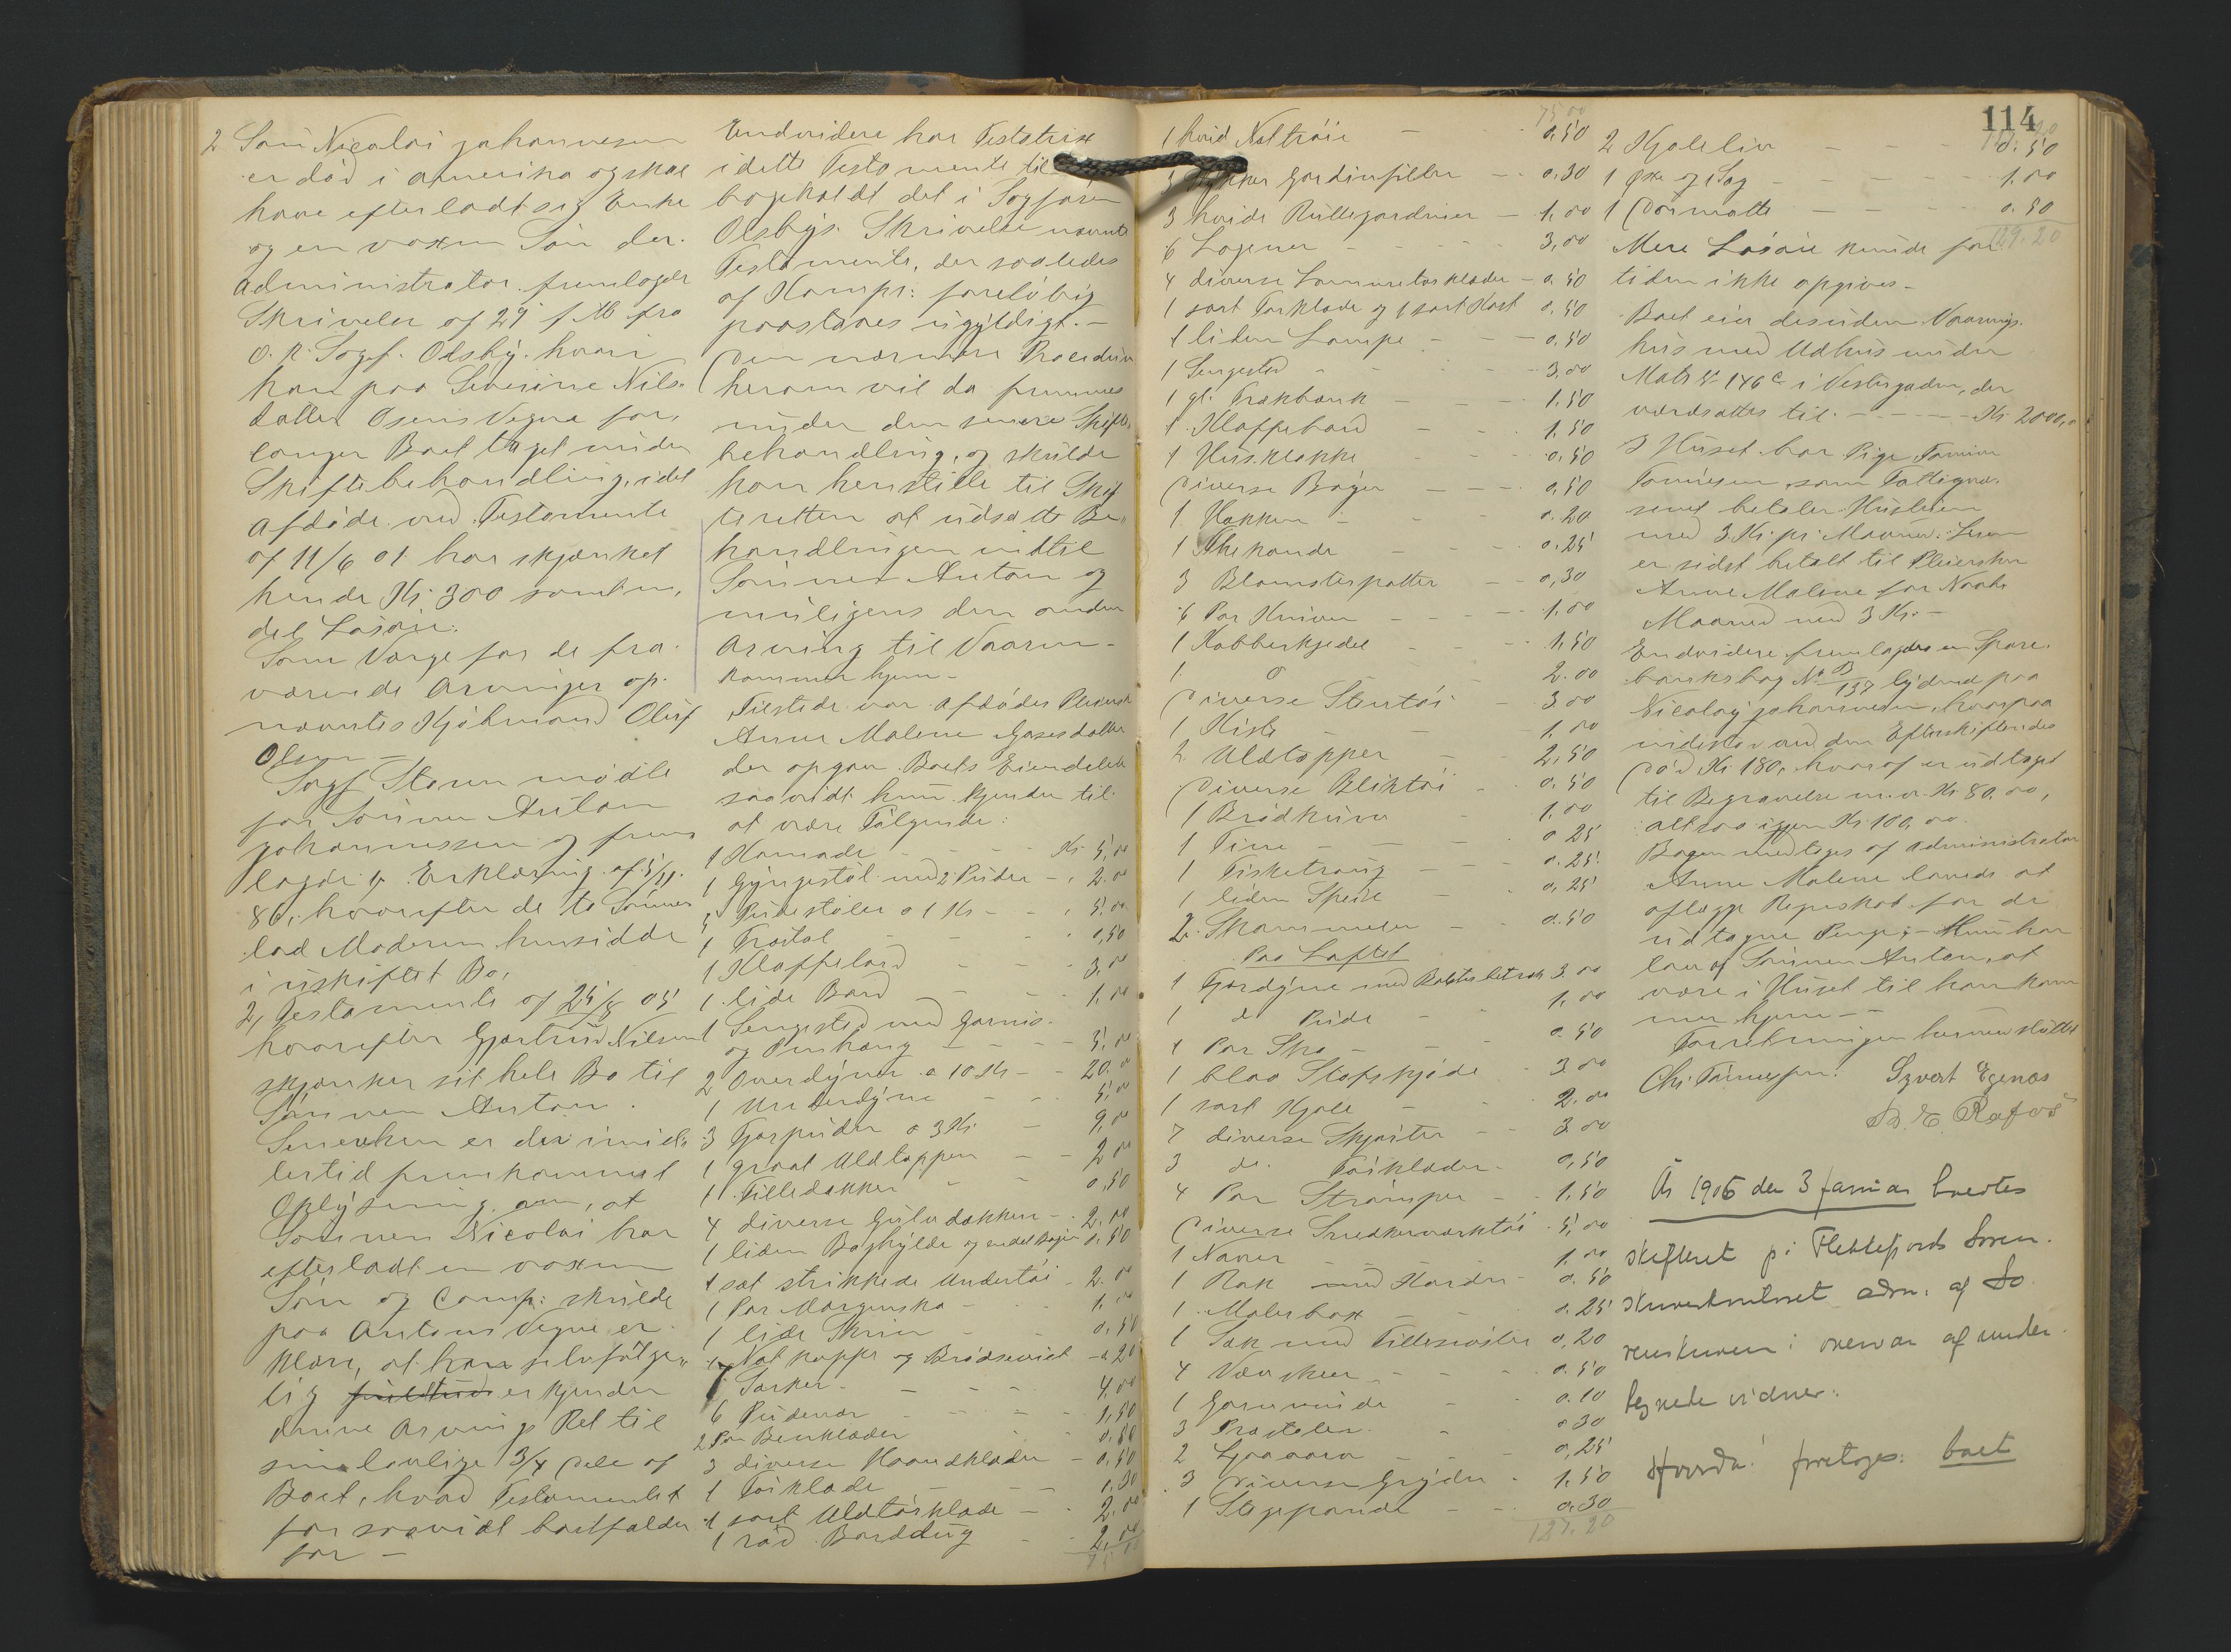 2 Søn Nicolai Johannesen
er død i Amerika og skal
have efterladt sig Enke
og en voxen Søn der.
Administrator fremlagde
Skrivelse af 29 f. M. fra
O. R. Sagf. Olsby. hvori
han paa Severine Nils-
datter Osens Vegne for-
langer Boet taget under
Skiftebehandling, idet
Afdøde ved Testamente
af 11/6 01 har skjænket
hende Kr 300 samt en
del Løsøre.
Som Værge for de fra-
værende Arvinger op-
nævntes Kjøbmand Oluf
Olsen -
Sagf Staren mødte
for Sønnen Anton
Johannessen og frem-
lagde 1, Erklæring af 5/11.
86, hvorefter de to Sønner
lod Moderen hensidde
i uskiftet Bo,
2, Testamente af 25/8 05
hvorefter Gjertrud Nilsen
skjænker sit hele Bo til
Sønnen Anton.
Senerehen er der imid-
lertid fremkommet
Oplysning om, at
Sønnen Nicolai har
efterladt en voxen
Søn og Comp: skulde
paa Antons Vegne er-
klære, at han selvfølge-
lig erkjender
denne Arvings Ret til
sin lovlige 3/4 Dele af
Boet, hvad Testamentet
for saavidt bortfalder
for -
Endvidere har Testatrix
i dette Testamente til
bagekaldt det i Sagfører
Olsbys Skrivelse nævnte
Testamente, der saaledes
af Komp: foreløbig
paastaaes ugyldigt. -
Den nærmere Procedure
herom vil da fremmes
under den senere Skifte-
behandling, og skulde
han henstille til Skif-
teretten at udsætte Be-
handlingen indtil
Sønnen Anton og
muligens den anden
Arving til Vaaren -
kommer hjem -
Tilstede var Afdødes Pleierske
Anne Malene Gasesdatter
der opgav Boets Eiendele
saavidt hun kjender til
at være Følgende:
1 Komode - - - Kr 5,00
1 Gyngestol med 2 Puder - 2.00
5 Pudestoler a 1 Kr - - 5,00
1 Træstol - - 0,50
1 Klaffebord - - 3,00
1 lide Bord - - 1.00
1 Sengested med Garnis.
og Omhæng - - - 5,00
2 Overdyner a 10 Kr - - 20.00
1 Underdyne - - 5,00
3 Fjærpuder a 3 Kr - 9,00
1 graat Uldtæppen - - 2 00
1 Filledækken - - 0,50
4 diverse Gulvdækken - - 2.00
1 liden Boghylde og endel Bøger 0.50
1 sæt strikkede Undertøi - 2.00
1 Par Morgensko - - 1.00
1 lide Skrin - - 0,50
1 Nat kappe og Brødservict - 0.20
7 Særker - - - 4,00
6 Pudevær - - - 1,50
2 Par Benklæder - - 0,50
3 diverse Haandklæder - 0,50
1 Tørklæde - - 1,30
1 sort Uldtørklæde - - 2.00
1 rød Borddug - - 2,00
1 hvid Nattrøie - 0.50
75,00
Stykker Gardinfiller - - 0.30
3 hvide Rullegardiner - 1,00
6 Lagener - - - 3,00
4 diverse Lommetørklæder - 0.50
1 sort Forklæde og 1 sort Kast 0.50
1 liden Lampe - - - 0.50
1 Sengested - - - 3,00
1 gl. Trækbænk - - 1.50
1 Klaffebord - - 1,50
1 Husklokke - - 0.50
Diverse Bøger - - - 0,50
1 Hakken - - 0.20
1 Thekande - - - 0.25
3 Blomsterpotter - - 0,30
6 Par Kniver - - - 1.00
1 Kobberkjedel - - 1.50
1 do - 2.00
Diverse Stentøi - 3 00
1 Kiste - - 1,00
2 Uldtæpper - - 2,50
Diverse Bliktøi - 0.50
1 Brødkurv - 1,00
1 Tine - - - 0 25
1 Fisketraug - - 0.25
1 liden Speile - - 0,25
2 Skammeler - 0.50
Paa Loftet
1 Fjærdyne med Bolsterbetræk 3.00
1 do Pude - - 1,00
1 Par Sko - - 0.50
1 blaa Stofskjøde - 3 00
1 sort Kjole - - 2.00
7 diverse Skjørter - - 3 00
3 do. Tørklæder - 0,50
4 Par Strømper - - 1.50
Diverse Snedkerværktøi - 5,00
1 Naver - - 1.00
1 Rok med Karder - 0.50
1 Malerbox - - 0.25
1 Sæk med Fillesnøster 0,20
4 Vævskeer - - 0.50
1 Garnvinde - 0.10
3 Prestoler - - 0 30
2 Ljaaorv - - 0,25
3 Diverse Gryder - 1.50
1 Stegepande - - 0.30
127.20
114
2 Kjoleliv - - - 0.50
1 Øxe og 1 Sag - - - 1,00
1 Dørmatte - - - 0.50
129.20
Mere Løsøre kunde for
tiden ikke opgives -
Boet eier desuden Vaanings-
hus med Udhus under
Matr. No 146 c i Vestergaden, der
værdsattes til - - - Kr 2000,00
I Huset bor Pige Tomine
Tønnesen, som Fattigvæ-
senet betaler Husleien
med 3 Kr. pr. Maaned. Leien
er sidst betalt til Pleiersken
Anne Malene for Novbr
Maaned med 3 Kr. -
Endvidere fremlagdes en Spare-
banksbog No B/137 lydende paa
Nicolay Johannesen, hvorpaa
indestod ved den Efterskiftendes
Død Kr 180, hvoraf er udtaget
til Begravelse m.v. Kr 80,00,
altsaa igjen Kr 100,00.
Bogen medtages af Administrator
Anne Malene lovede at
aflægge Regnskab for de
udtagne Penge; - Hun har
lov af Sønnen Anton, at
være i Huset til han kom-
mer hjem - -
Forretningen hermed sluttet
Chr Tønnessen. Syvert Egenæs
B. E. Røføs
År 1906 den 3 januar holdtes
skifteret på Flekkefjords Soren-
skriverkontoret adm. af So
renskriveren i overvær af under
tegnede vidner:
Hvorda! foretoges: boet